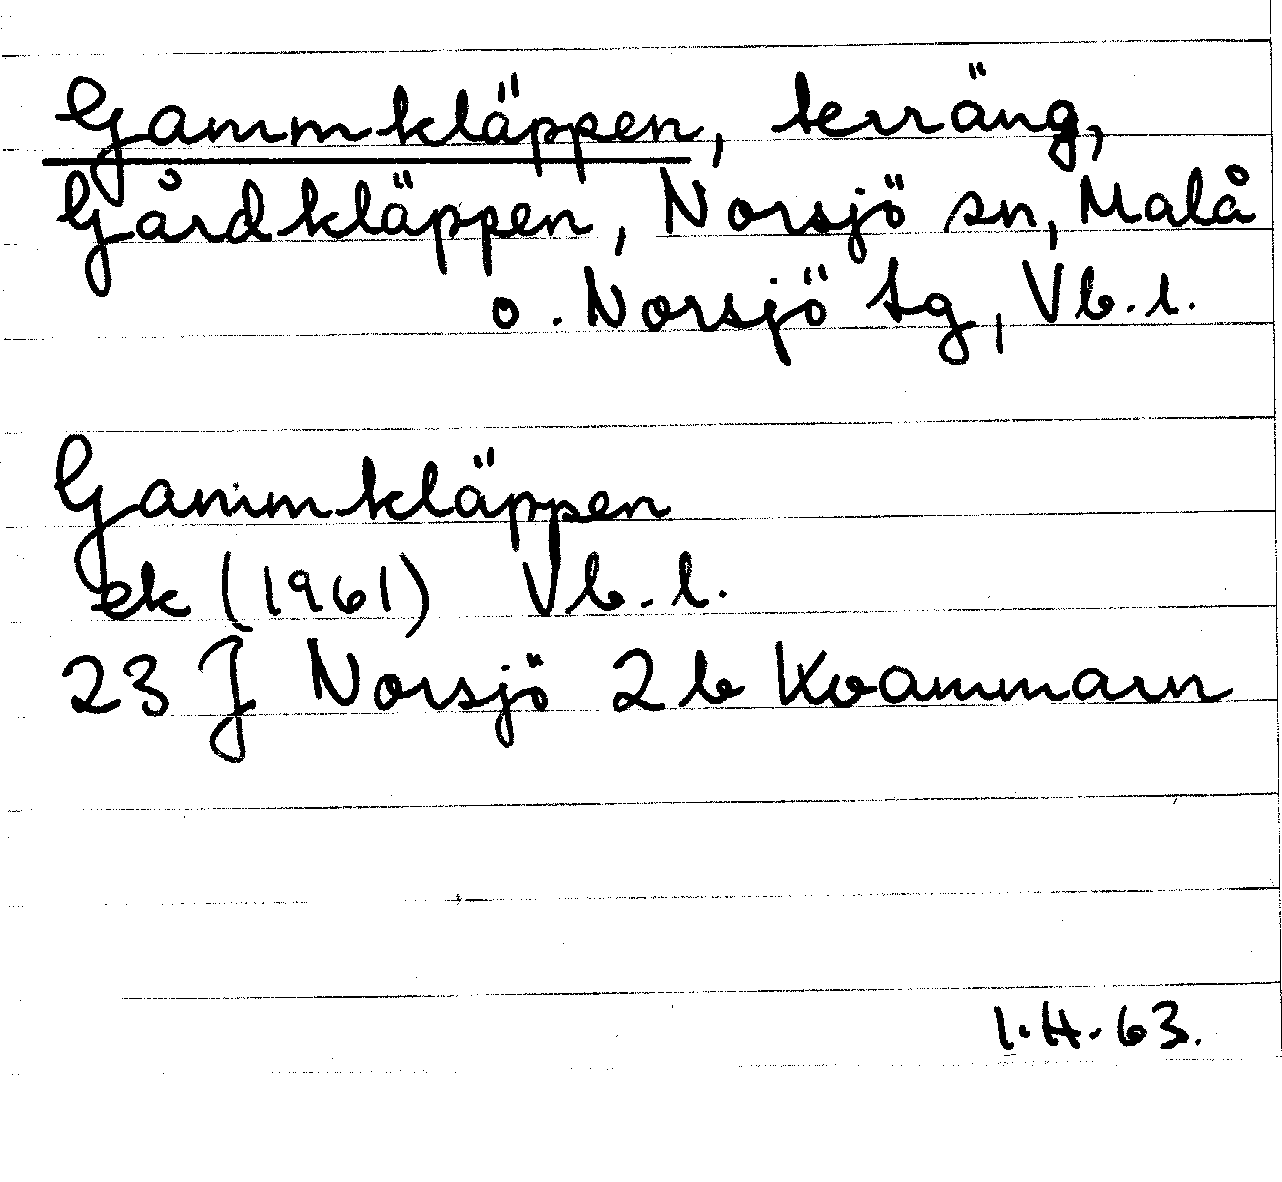 Gammkläppen, terräng,
Gårdkläppen, Norsjö sn, Malå
o. Norsjö tg, Vb. l.
Gammkläppen
ek (1961) Vb. l.
23 J Norsjö 2 b Kvammarn
I. H. 63.